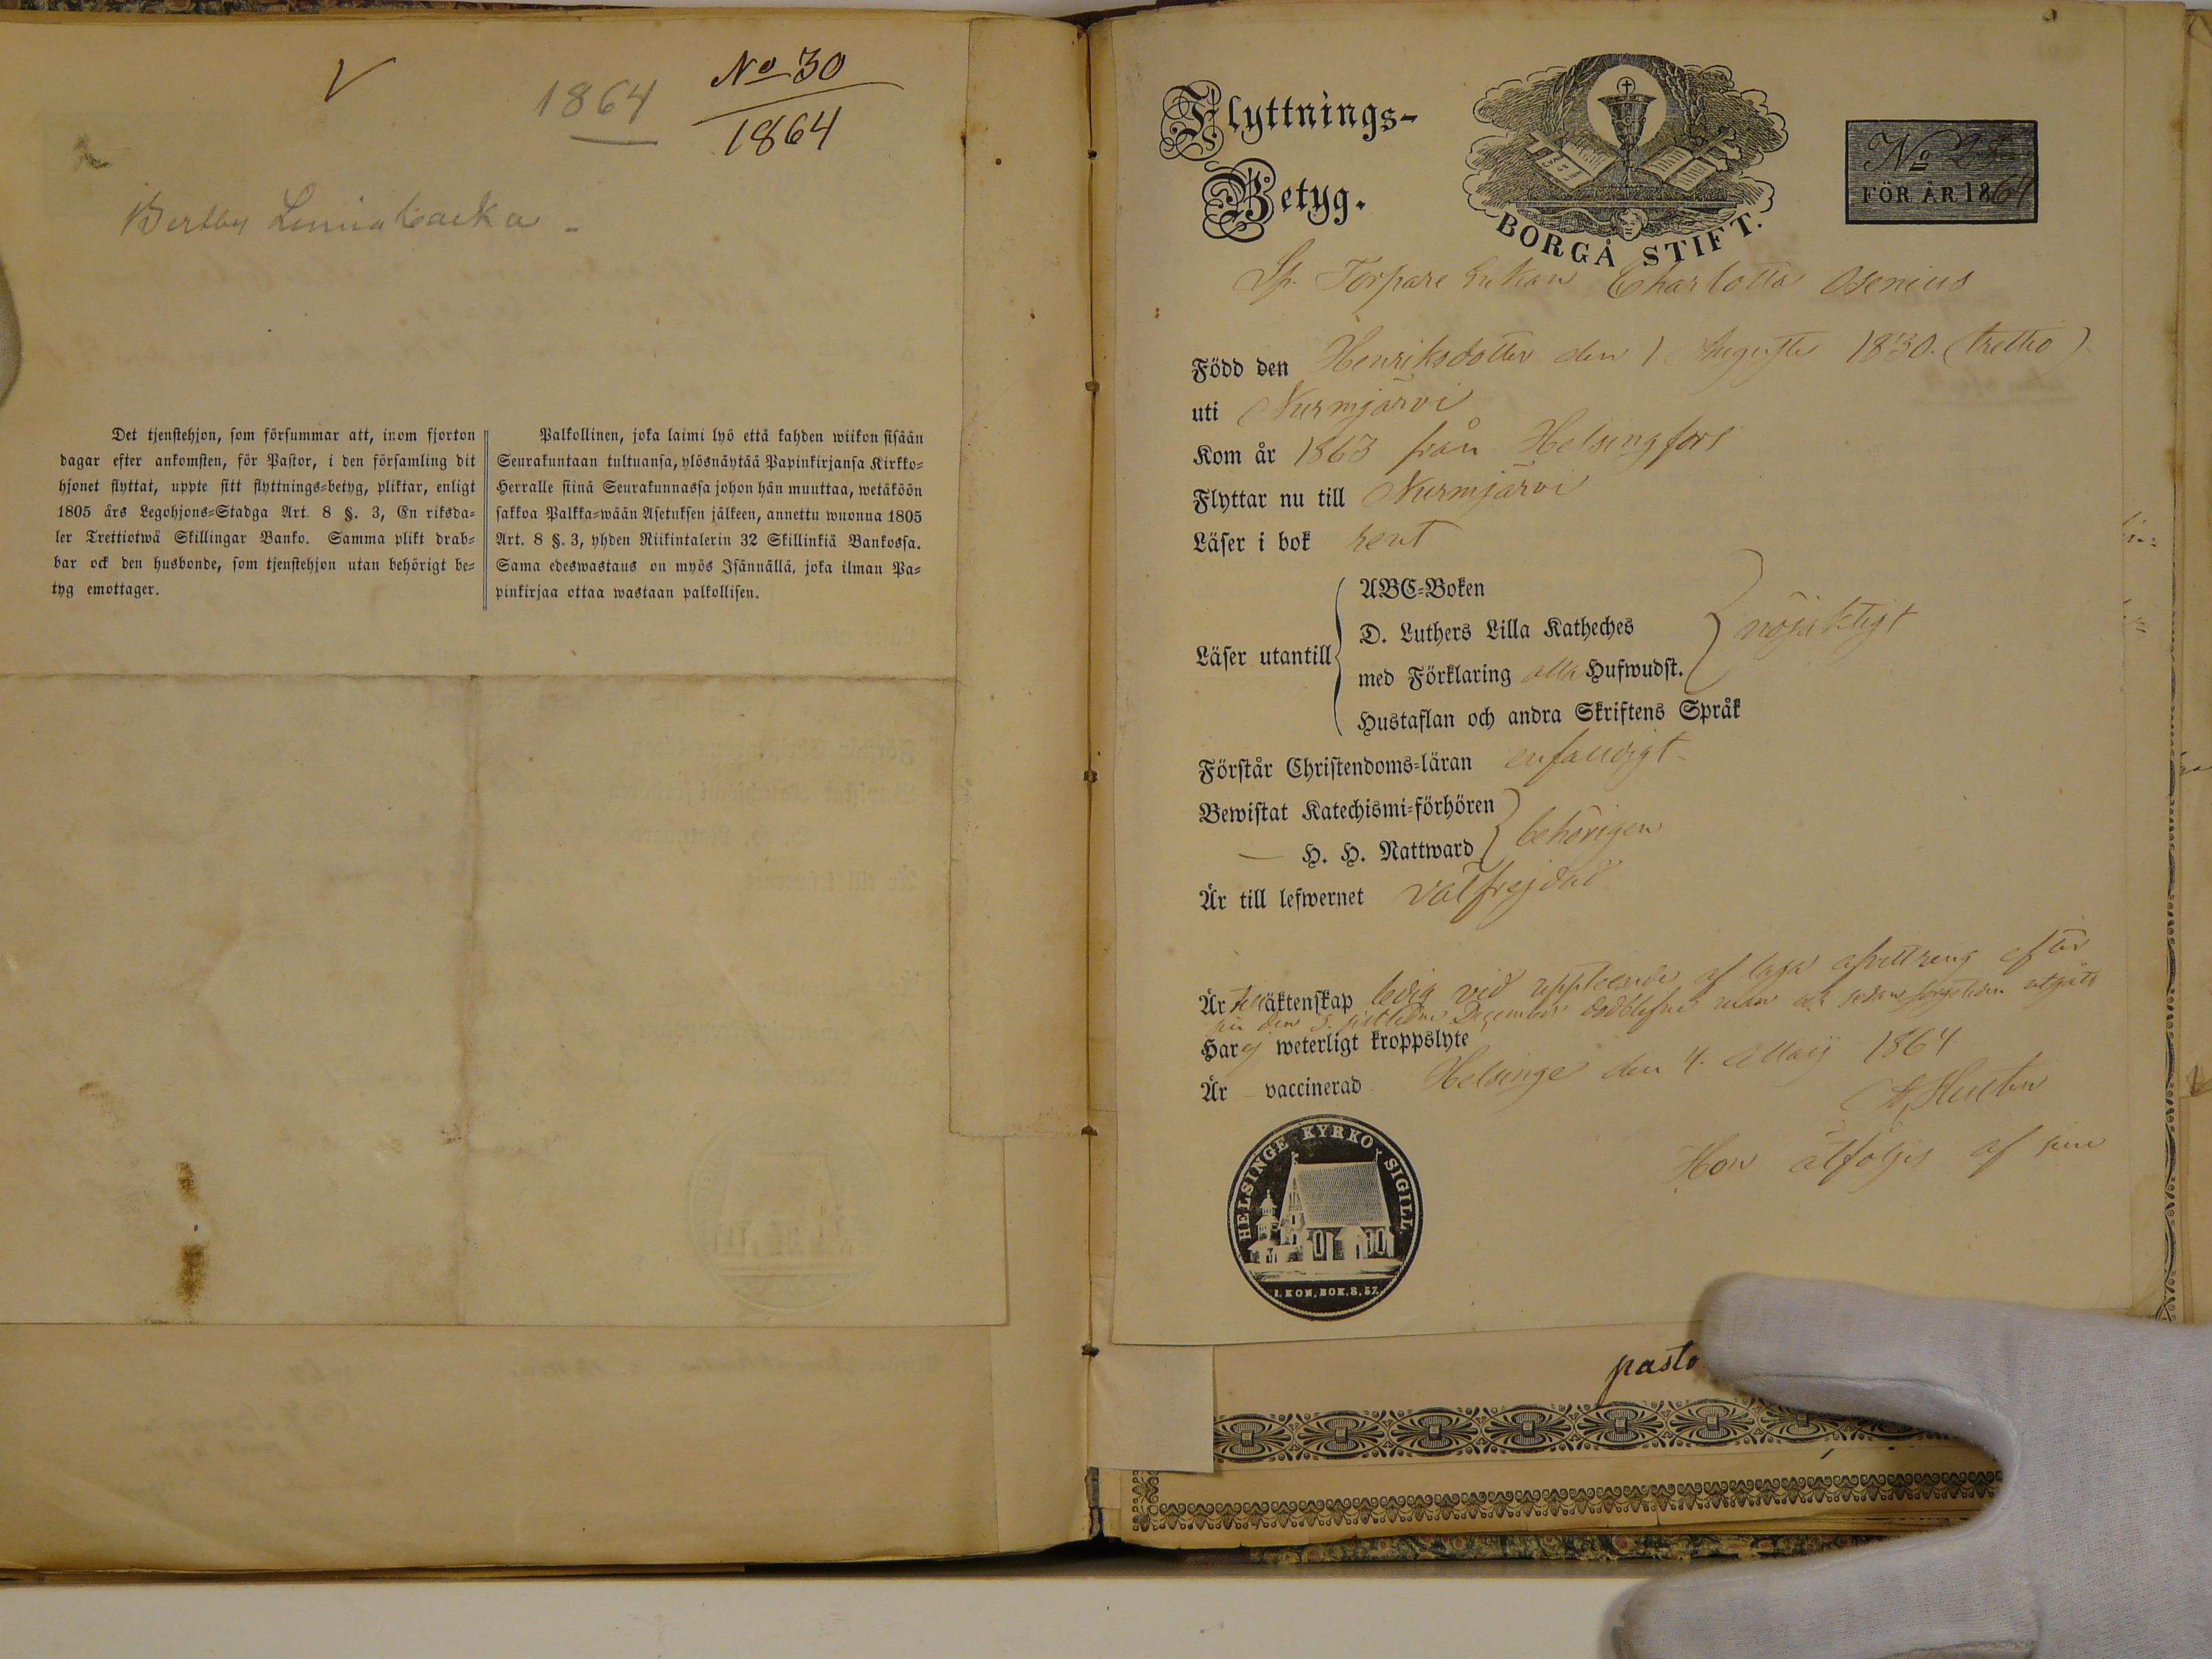 1864
No 30
1864
Bertby
Det tjenstehjon, som försummar att, inom fjorton
dagar efter ankomsten, för Pastor, i den församling dit
hjonet flyttat, uppte sitt flyttnings=betyg, pliktar, enligt
1805 års Legohjons=Stadga Art. 8 §. 3, En riksda=
ler Trettiotwå Skillingar Banko. Samma plikt drab=
bar ock den husbonde, som tjenstehjon utan behörigt be=
tyg emottager.
Palkollinen, joka laimi lyö että kahden wiikon sisään
Seurakuntaan tultuansa, ylösnäytää Papinkirjansa Kirkko=
Herralle siinä Seurakunnassa johon hän muuttaa, wetäköön
sakkoa Palkka=wään Asetuksen jälkeen, annettu wuonna 1805
Art. 8 §. 3, yhden Riikintalerin 32 Skillinkiä Bankossa.
Sama edeswastaus on myös Isännällä, joka ilman Pa=
pinkirjaa ottaa wastaan palkollisen.
Flyttnings-
Betyg.
BORGÅ STIFT.
No
FÖR ÅR 1864
Sp. Torpare Enkan Charlotta Asenius
Född den Henriksdotter den 1 Augusti 1830. (trettio)
uti Nurmjärvi
Kom år 1863 från Helsingfors
Flyttar nu till Nurmjärvi
Läser i bok rent
ABC=Boken
D. Luthers Lilla Katheches
Läser utantill
nöjaktigt
med Förklaring alla Hufwudst.
Hustaflan och andra Skriftens Språk
Förstår Christendoms=läran enfaldigt
Bewistat Katechismi=förhören
— H. H. Nattward behörigen
Är till lefwernet välfrejdad
Är till äktenskap ledig vid uppteende af laga afvittring efter
sin den 5. sistledne December dödblefne man och sedan sorgetiden utgått
Har ej weterligt kroppslyte
Är vaccinerad Helsinge den 4. Maij 1864
Hon åtföljes af sin
HELSINGE KYRKO SIGILL
1. KON. BOK. 8. 57.
pasto